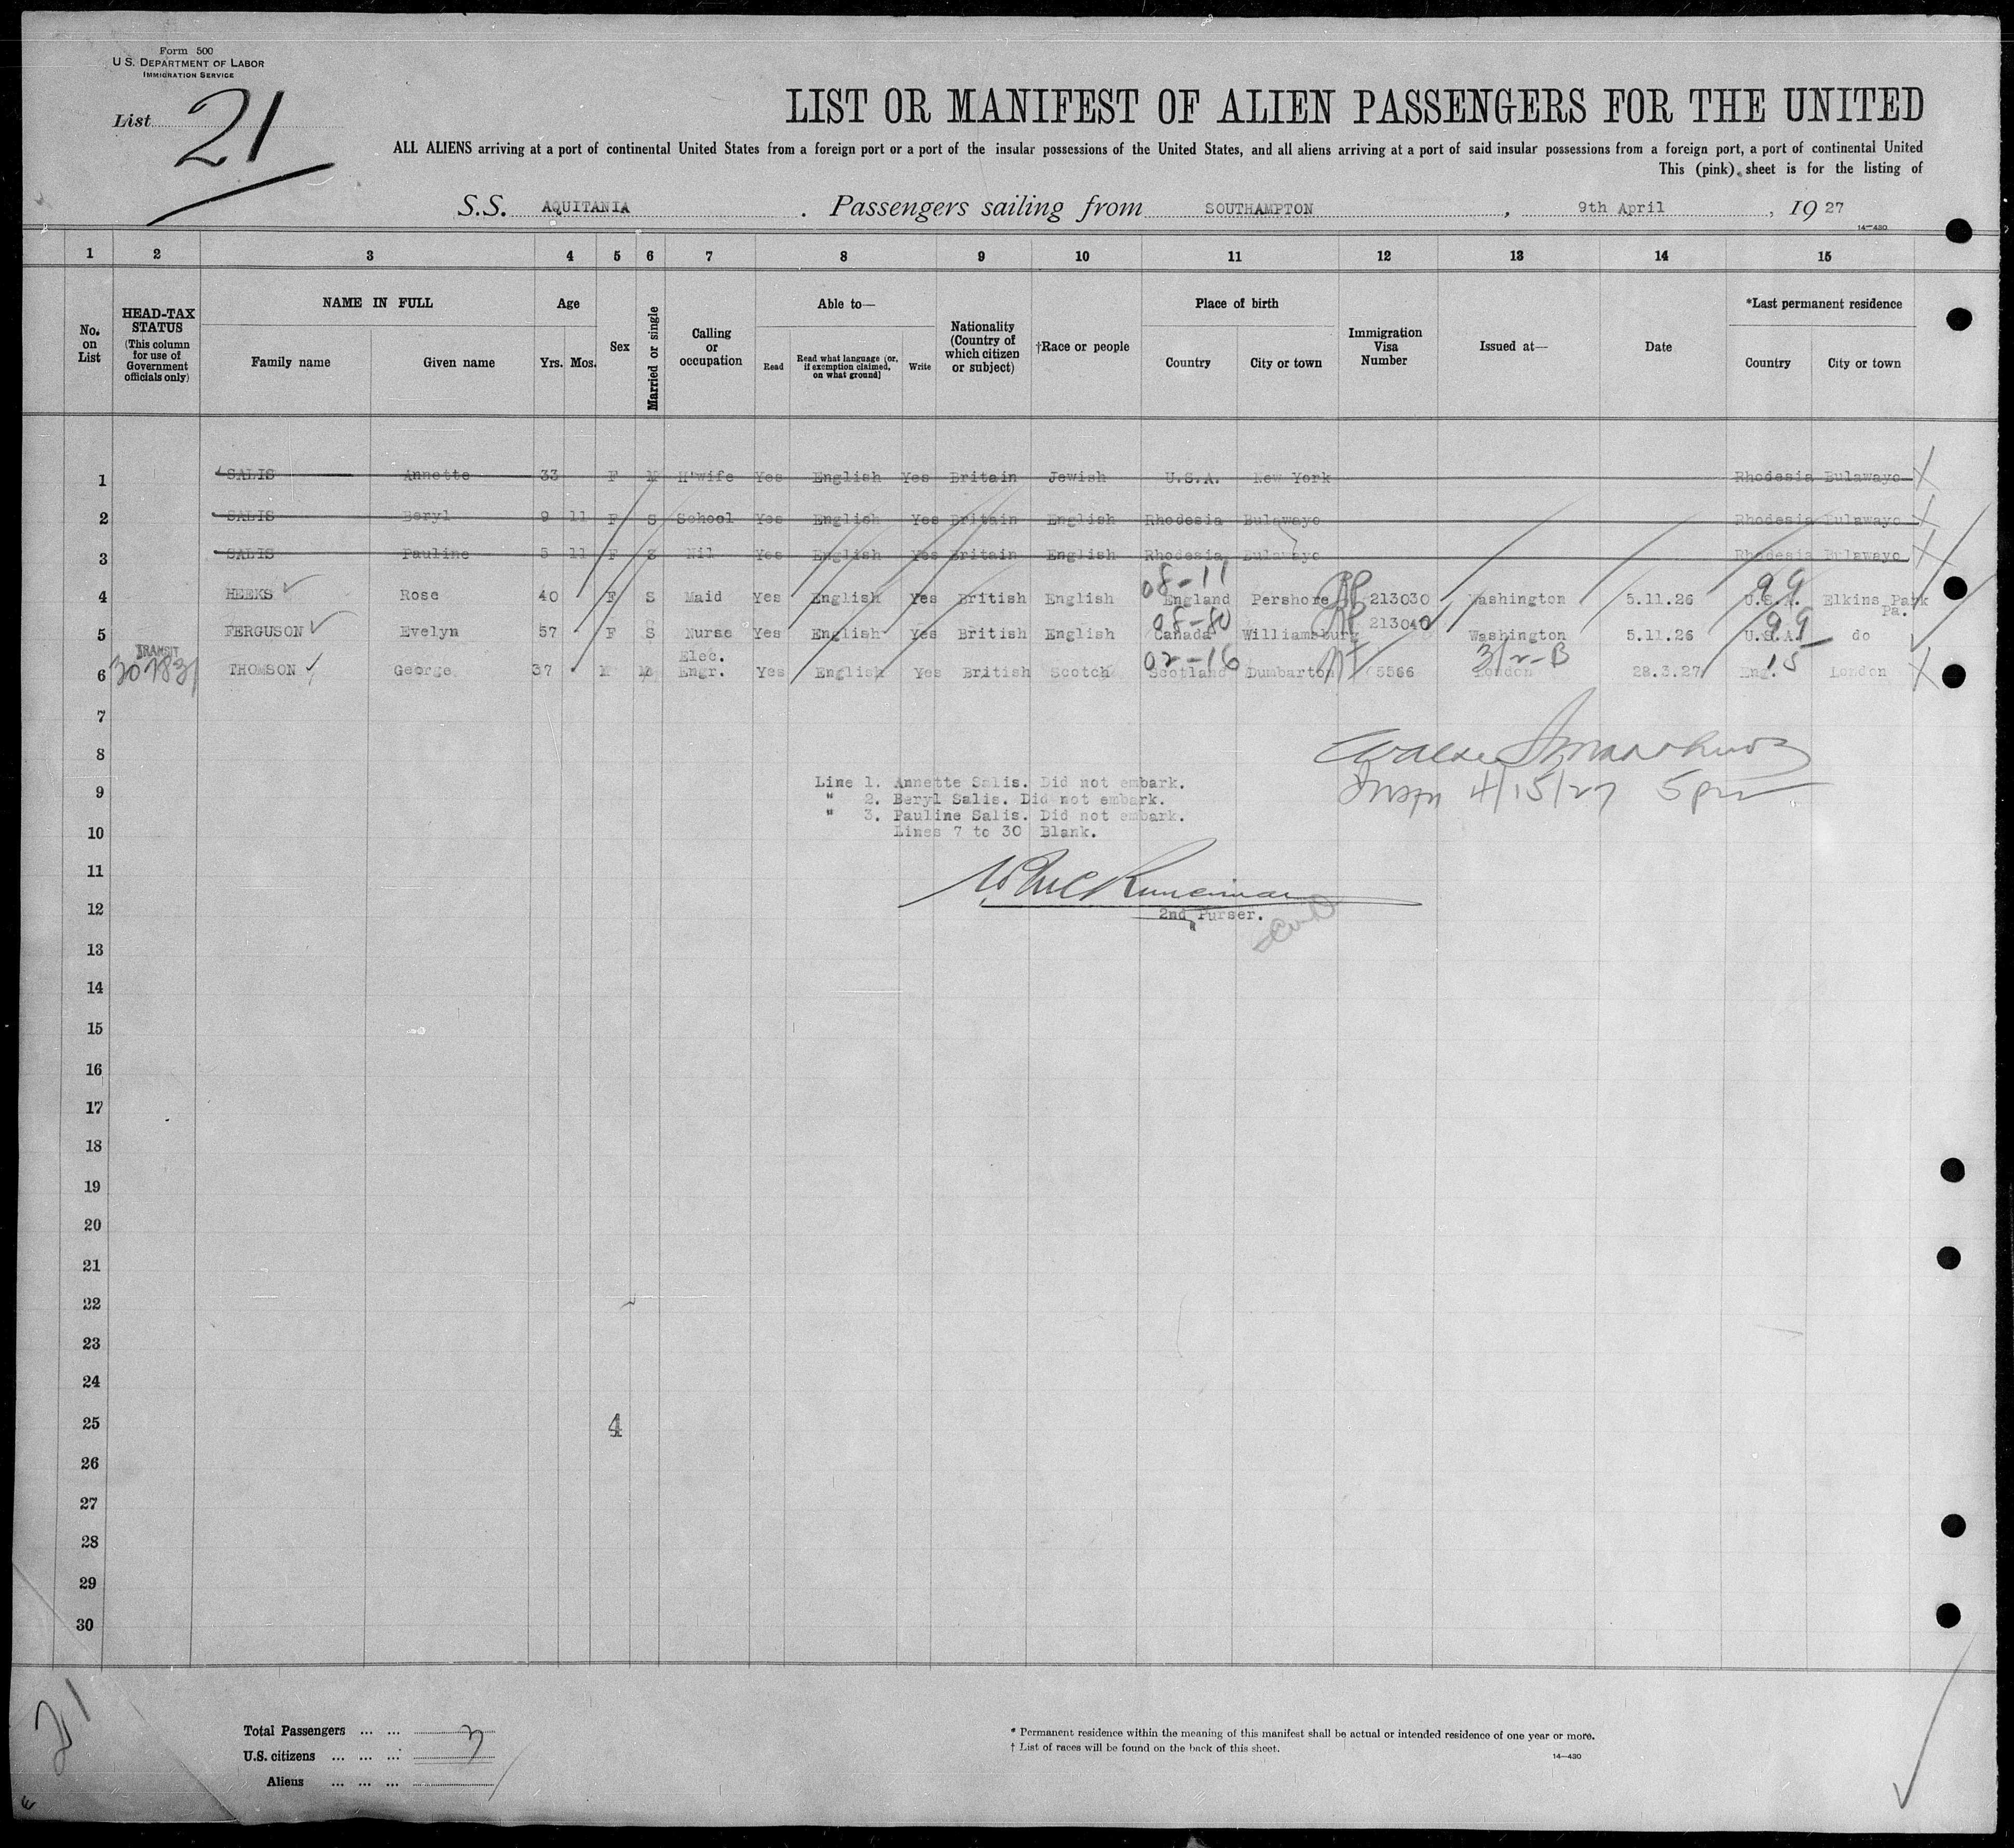 Form 500
U.S. DEPARTMENT OF LABOR
IMMIGRATION SERVICE
List 21
LIST OR MANIFEST OF ALIEN PASSENGERS FOR THE UNITED
ALL ALIENS arriving at a port of continental United States from a foreign port or a port of the insular possessions of the United States, and all aliens arriving at a port of said insular possessions from a foreign port, a port of continental United
This (pink) sheet is for the listing of
S.S. AQUITANIA. Passengers sailing from SOUTHAMPTON, 9th April, 1927
14—430
1 2 3 4 5 6 7 8 9 10 11 12 13 14 15
No. on List
HEAD-TAX STATUS (This column for use of Government officials only)
NAME IN FULL
Family name
Given name
Age
Yrs. Mos.
Sex
Married or single
Calling or occupation
Able to—
Read
Read what language (or, if exemption claimed, on what ground)
Write
Nationality (Country of which citizen or subject)
†Race or people
Place of birth
Country
City or town
Immigration Visa Number
Issued at—
Date
*Last permanent residence
Country
City or town
1 SALIS Annette 33 F M H'wife Yes English Yes Britain Jewish U.S.A. New York Rhodesia Bulawayo
2 SALIS Beryl 9 11 F S School Yes English Yes Britain English Rhodesia Bulawayo Rhodesia Bulawayo
3 SALIS Pauline 5 11 F S Nil Yes English Yes Britain English Rhodesia Bulawayo Rhodesia Bulawayo
08-11 99
4 HEEKS Rose 40 F S Maid Yes English Yes British English England Pershore RP 213030 Washington 5.11.26 U.S.A. Elkins Park Pa.
08-80 99
5 FERGUSON Evelyn 57 F S Nurse Yes English Yes British English Canada Williamsburg RP 213040 Washington 5.11.26 U.S.A. do
TRANSIT
02-16 3/2-B 15
6 THOMSON George 37 M M Elec. Engr. Yes English Yes British Scotch Scotland Dumbarton 5566 London 28.3.27 Eng. London
7
8
Line 1. Annette Salis. Did not embark.
9
4/15/27 5 pm
" 2. Beryl Salis. Did not embark.
" 3. Pauline Salis. Did not embark.
10
Lines 7 to 30 Blank.
11
Runciman
12
2nd Purser.
13
14
15
16
17
18
19
20
21
22
23
24
25
4
26
27
28
29
30
21
Total Passengers ... ...
U.S. citizens ... ... ...
Aliens ... ... ...
* Permanent residence within the meaning of this manifest shall be actual or intended residence of one year or more.
† List of races will be found on the back of this sheet.
14—430